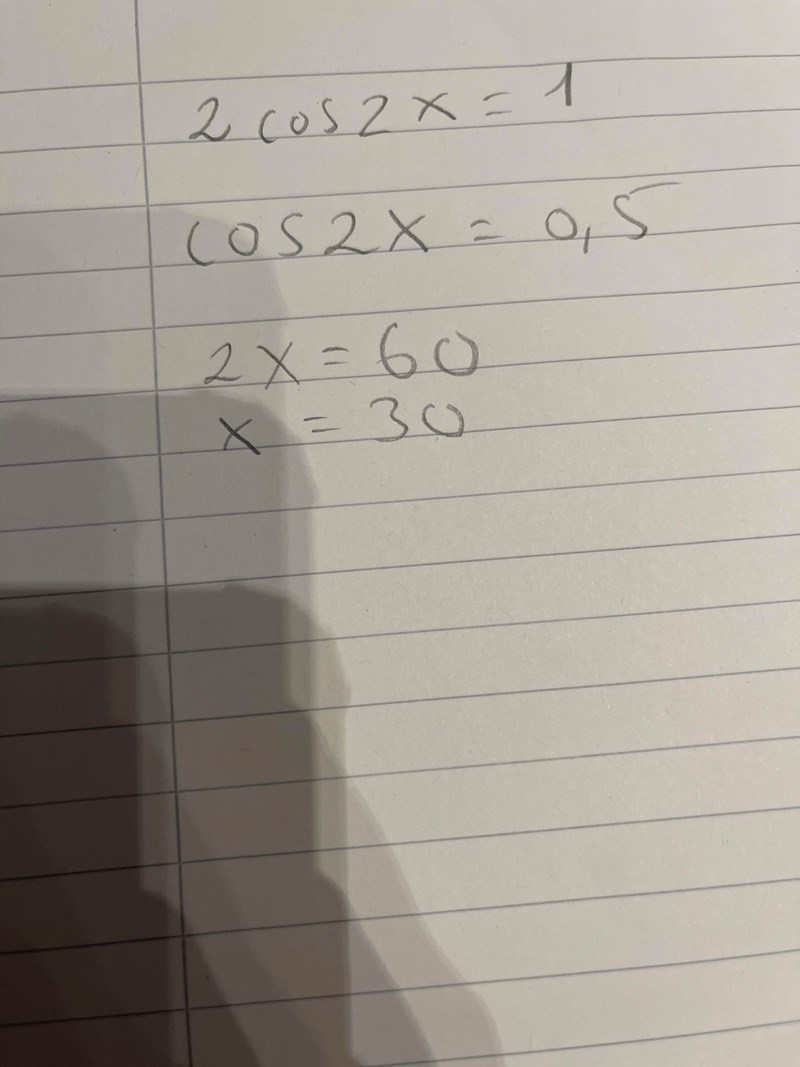 2 cos 2x = 1
cos 2x = 0,5
2x = 60
x = 30